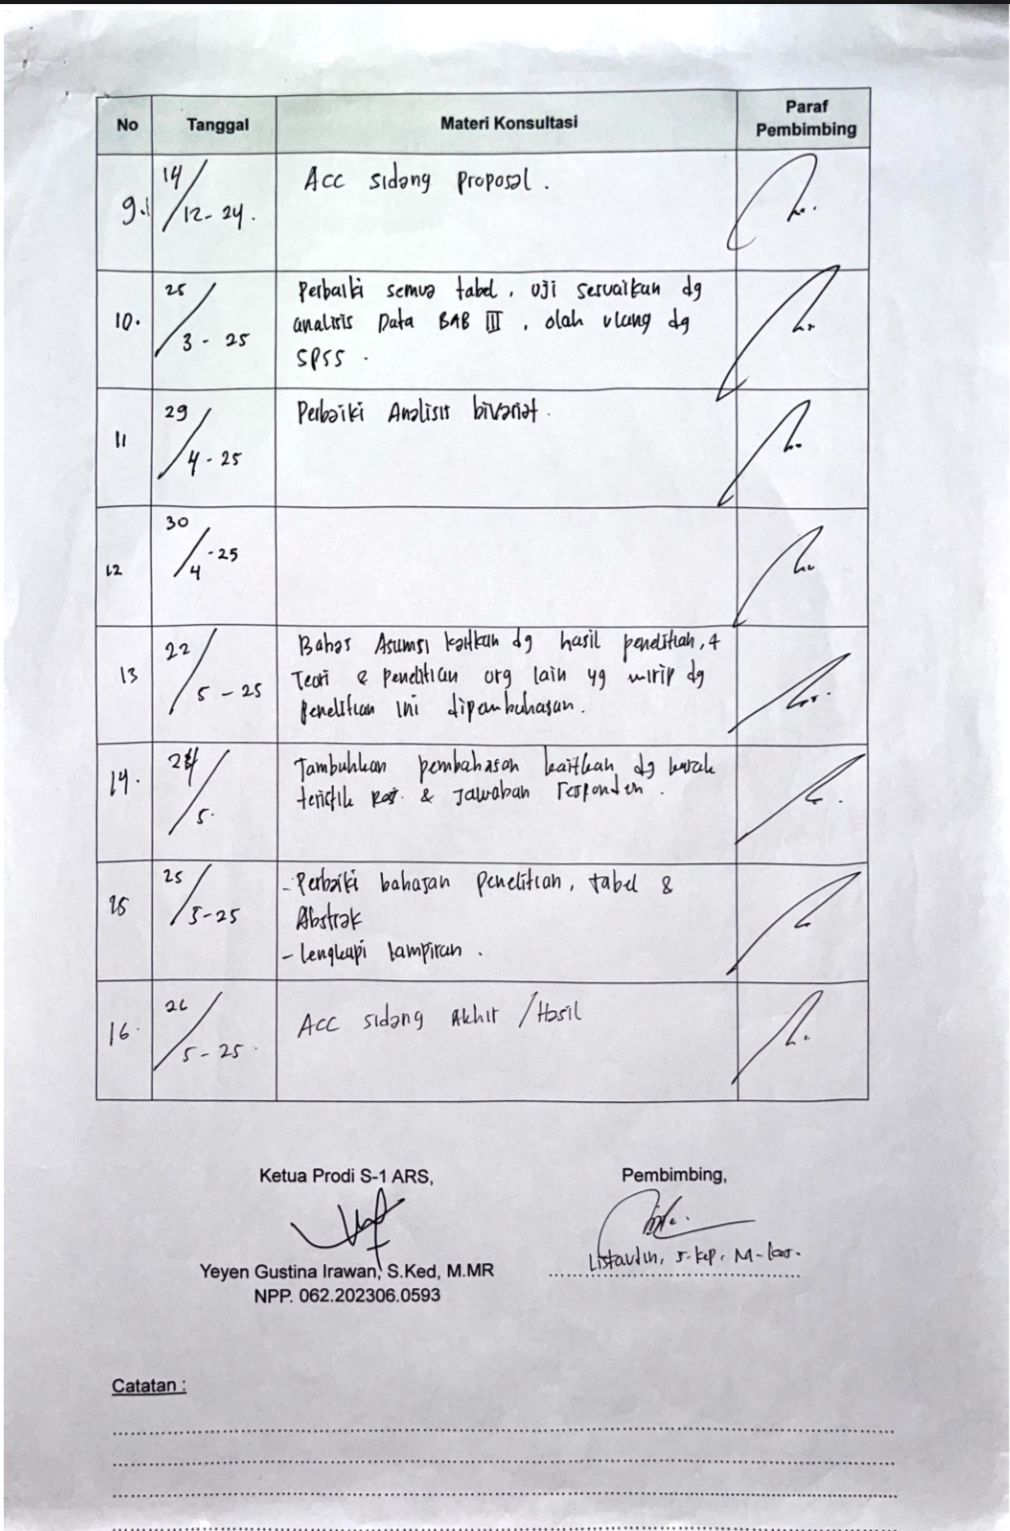 No Tanggal Materi Konsultasi Paraf
Pembimbing
9. 14/12-24. Acc sidang proposal.
10. 25/3-25 Perbaiki semua tabel, uji sesuaikan dg
analisis Data BAB III, olah ulang dg
SPSS.
11 29/4-25 Perbaiki Analisis bivariat.
12 30/4-25
13 22/5-25 Bahas Asumsi kaitkan dg hasil penelitian,
Teori & penelitian org lain yg mirip dg
penelitian ini dipembahasan.
14. 24/5. Tambahkan pembahasan kaitkan dg karak
teristik & Jawaban responden.
15 25/5-25 - Perbaiki bahasan penelitian, tabel &
Abstrak
- Lengkapi lampiran.
16. 26/5-25. Acc sidang Akhir /Hasil
Ketua Prodi S-1 ARS, Pembimbing,
Listautin, S.Kep. M-
Yeyen Gustina Irawan, S.Ked, M.MR
NPP. 062.202306.0593
Catatan :